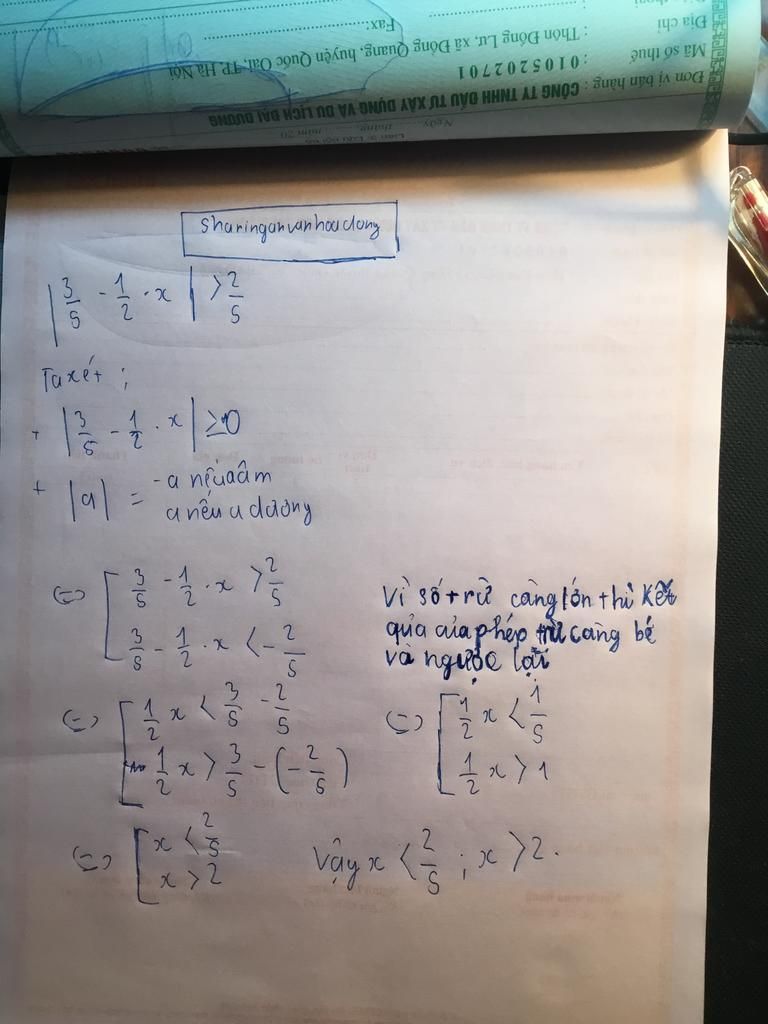 Đơn vị bán hàng : CÔNG TY TNHH ĐẦU TƯ XÂY DỰNG VÀ DU LỊCH ĐẠI DƯƠNG
Mã số thuế : 0105202701
Địa chỉ : Thôn Đồng Lư, xã Đồng Quang, huyện Quốc Oai, TP. Hà Nội
Fax:
Ngày tháng năm 20
sharinganvanhoadong
|3/5 - 1/2 . x| > 2/5
Ta xét ;
+ |3/5 - 1/2 . x| ≥ 0
+ |a| = -a nếu a âm
a nếu a dương
(=) [ 3/5 - 1/2 . x > 2/5
3/5 - 1/2 . x < - 2/5
Vì số trừ càng lớn thì kết
quả của phép trừ càng bé
và ngược lại
(=) [ 1/2 x < 3/5 - 2/5
1/2 x > 3/5 - (- 2/5)
(=) [ 1/2 x < 1/5
1/2 x > 1
(=) [ x < 2/5
x > 2
Vậy x < 2/5 ; x > 2.